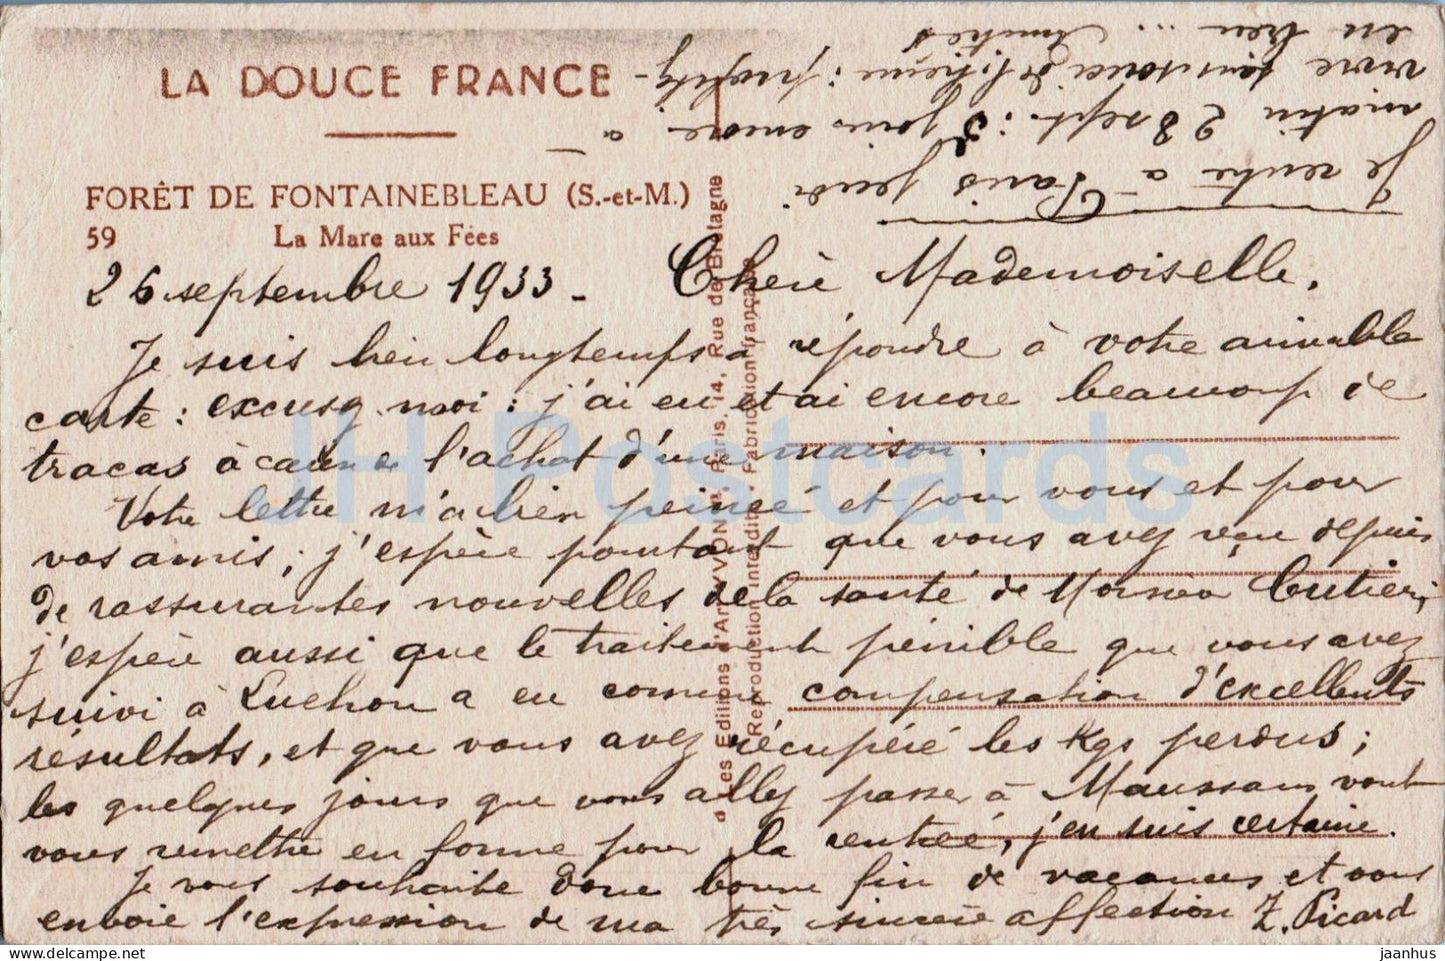 LA DOUCE FRANCE
FORÊT DE FONTAINEBLEAU (S.-et-M.)
59 La Mare aux Fées
26 septembre 1933 - Chère Mademoiselle,
Je suis bien longtemps à répondre à votre aimable
carte : excusez moi : j'ai eu et ai encore beaucoup de
tracas à cause de l'achat d'une maison.
Votre lettre m'a bien peinée et pour vous et pour
vos amis ; j'espère pourtant que vous avez reçu depuis
de rassurantes nouvelles de la santé de Monsieur
j'espère aussi que le traitement pénible que vous avez
suivi à Luchon a eu comme compensation d'excellents
résultats, et que vous avez récupéré les Kgs perdus ;
les quelques jours que vous allez passer à Maussans vont
vous remettre en forme pour la rentrée, j'en suis certaine.
Je vous souhaite donc bonne fin de vacances et vous
envoie l'expression de ma très sincère affection Z. Picard
Je rentre à Paris jeudi
matin 28 sept. : jours encore à
vivre sans souci de : profitez-
en bien ... Amitiés
Les Editions d'Art YVON, Paris, 14, Rue de Bretagne
Reproduction interdite. Fabrication française
IH Postcards
jaanhus